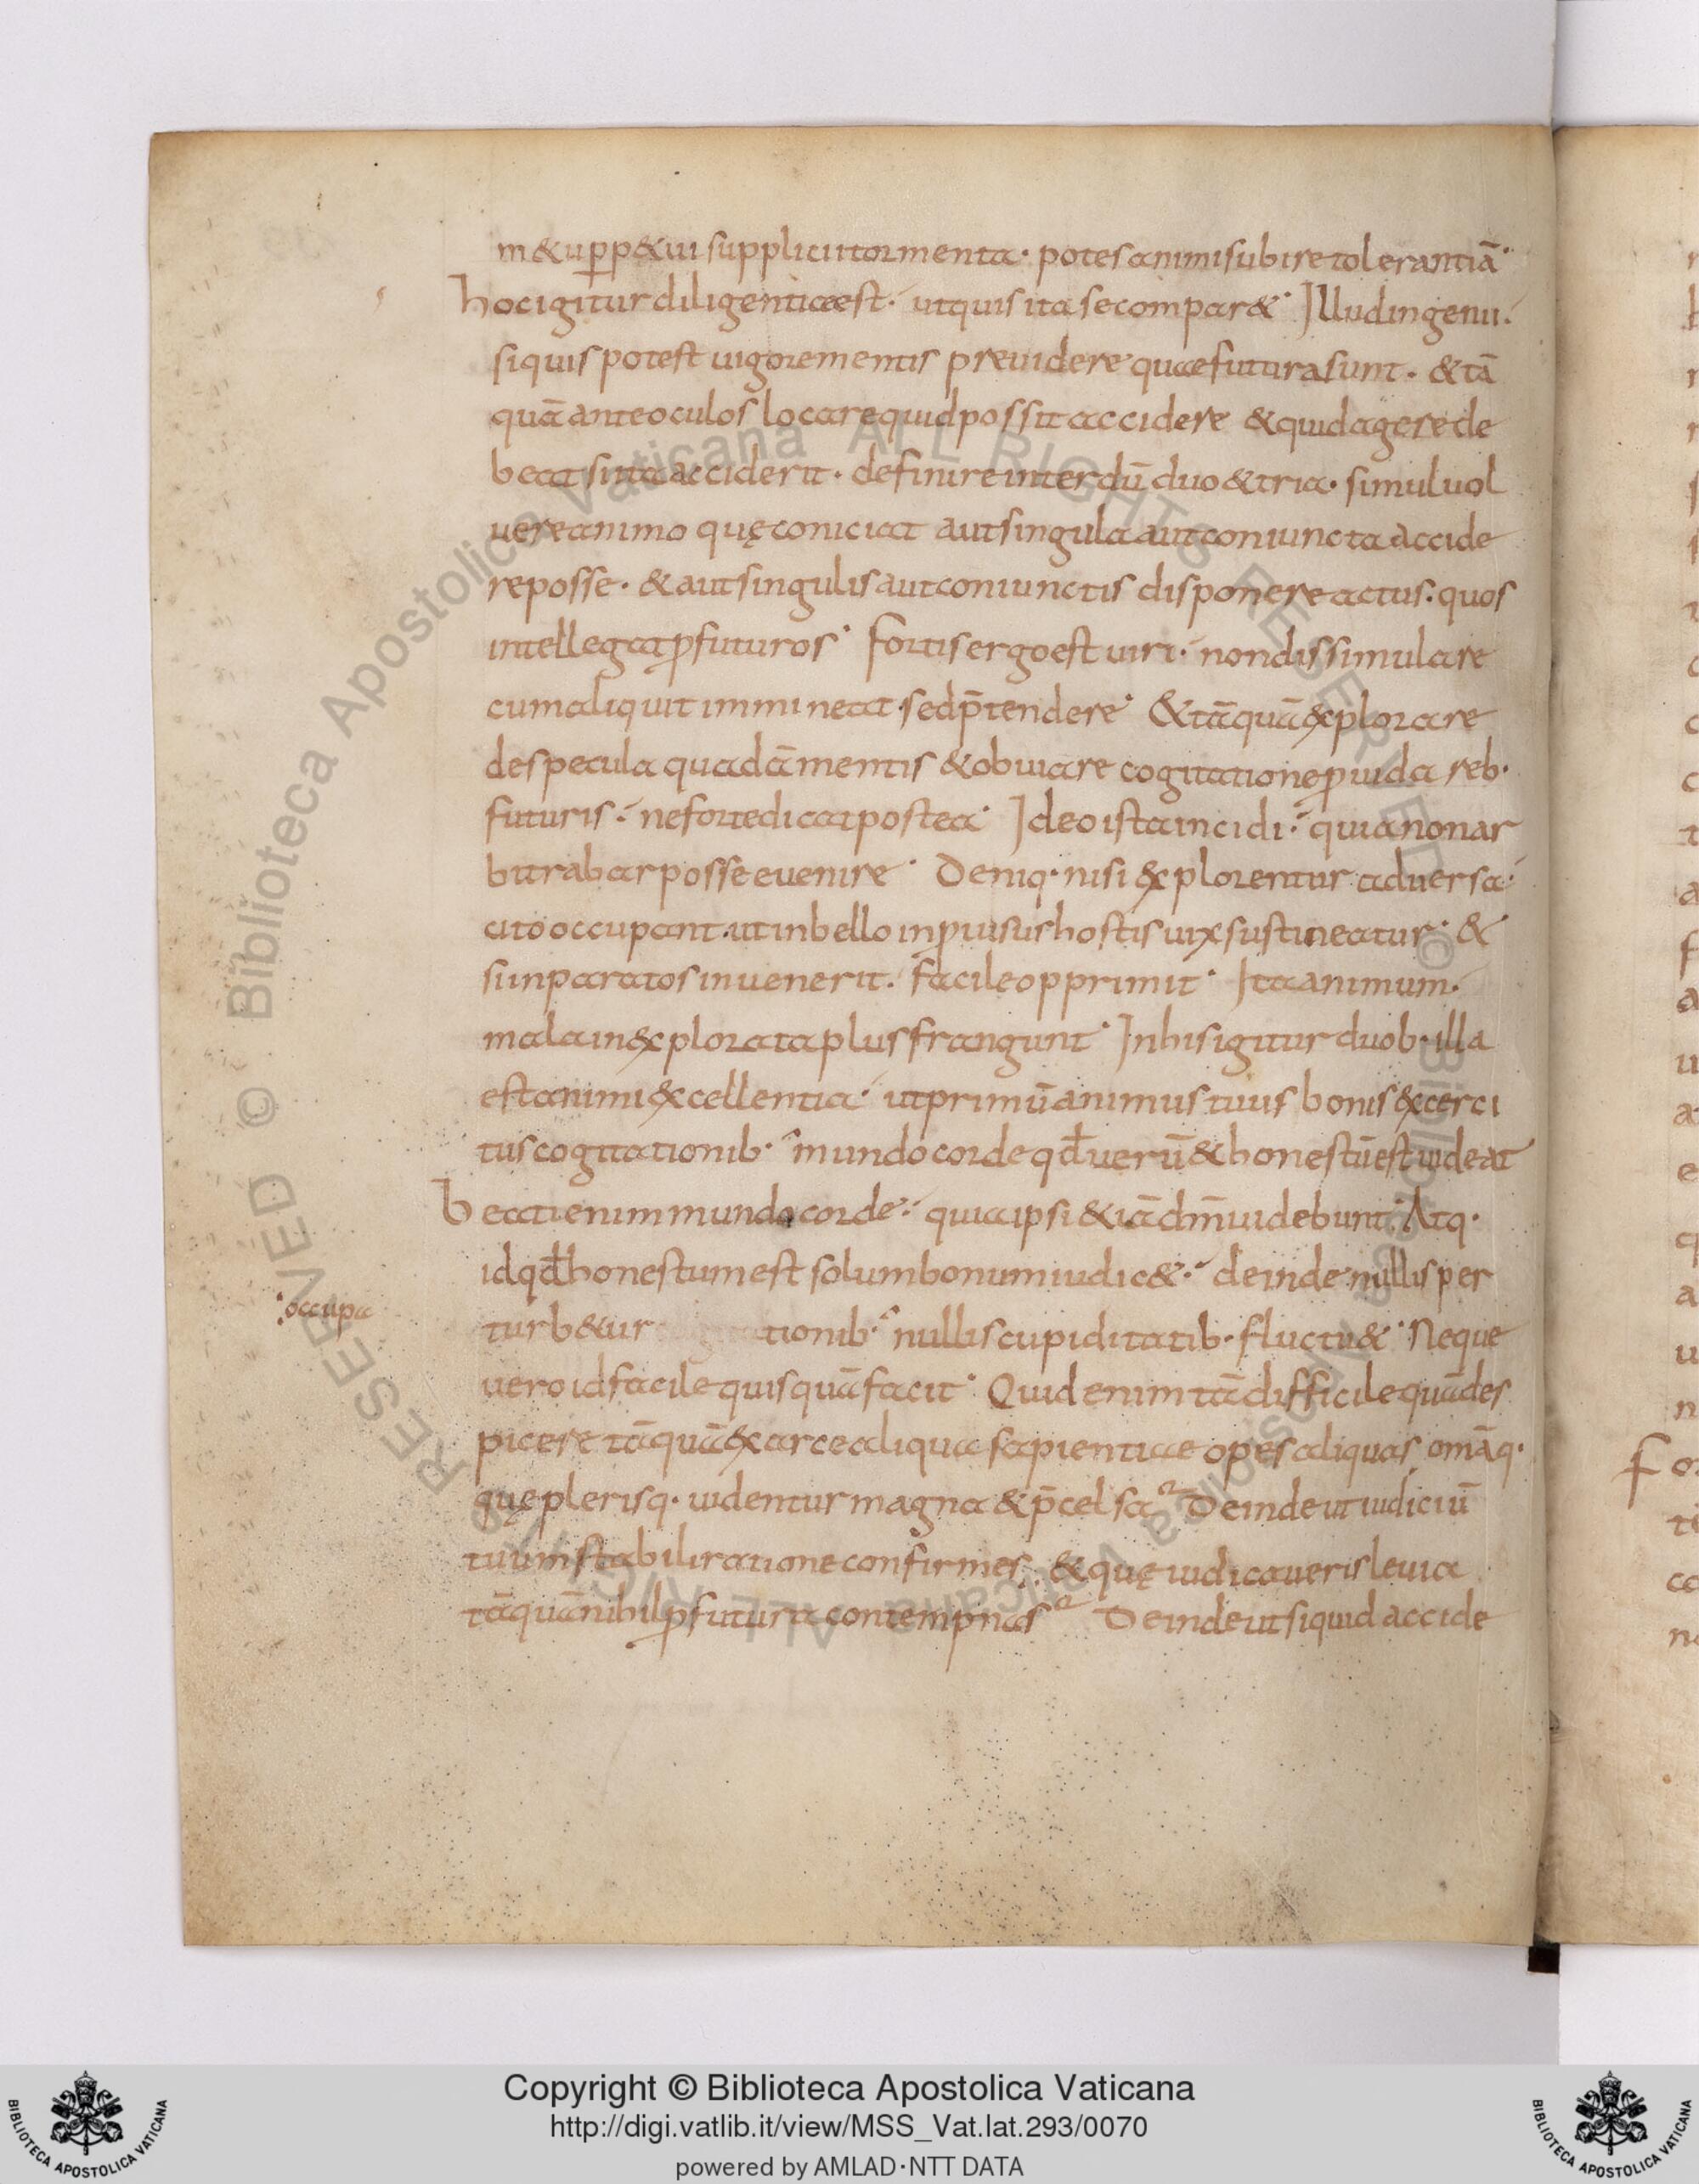 m&uꝑp&ui supplicii tormenta· potes animi subire tolerantiā·
hoc igitur diligentiae est· ut quis ita se compar&· Illud ingenii·
si quis potest uigore mentis preuidere quae futura sunt· & tā
quā ante oculos locare quid possit accidere & quid agere de
beat si ita acciderit· definire interdū duo & tria· simul uol
uere animo quę coniciat aut singula aut coniuncta accide
re posse· & aut singulis aut coniunctis disponere actus· quos
intellegat ꝓfuturos· Fortis ergo est uiri· non dissimulare
cum aliquit immineat· sed p̄tendere· & tāquā explorare
de specula quadā mentis & obuiare cogitatione ꝓuida reb·
futuris· ne forte dicat postea· Ideo ista incidi· quia non ar
bitrabar posse euenire· Deniq· nisi explorentur aduersa·
cito occupant· ut in bello inꝓuisus hostis uix sustineatur· &
si inparatos inuenerit· facile opprimit· Ita animum·
mala inexplorata plus frangunt· In his igitur duob· illa
est animi excellentia· ut primū animus tuus bonis exerci
tus cogitationib· mundo corde qd̄ uerū & honestū est uideat
Beati enim mundo corde· quia ipsi & iā dn̄m uidebunt· Atq·
id qd̄ honestum est solum bonum iudic&· deinde nullis per
occupa
turb&ur tionib· nullis cupiditatib· fluctu&· Neque
uero id facile quisquā facit· Quid enim tā difficile quā des
picere tāquā ex arce aliqua sapientiae opes aliquas omāq·
quę plerisq· uidentur magna & p̄celsa Deinde ut iudiciū
tuum stabili ratione confirmes· & quę iudicaueris leuia
tāquā nihil ꝓfutura contempnas Deinde ut si quid accide
Copyright © Biblioteca Apostolica Vaticana
http://digi.vatlib.it/view/MSS_Vat.lat.293/0070
powered by AMLAD·NTT DATA
BIBLIOTECA APOSTOLICA VATICANA
BIBLIOTECA APOSTOLICA VATICANA
© Biblioteca Apostolica Vaticana ALL RIGHTS RESERVED
© Biblioteca Apostolica Vaticana ALL RIGHTS RESERVED